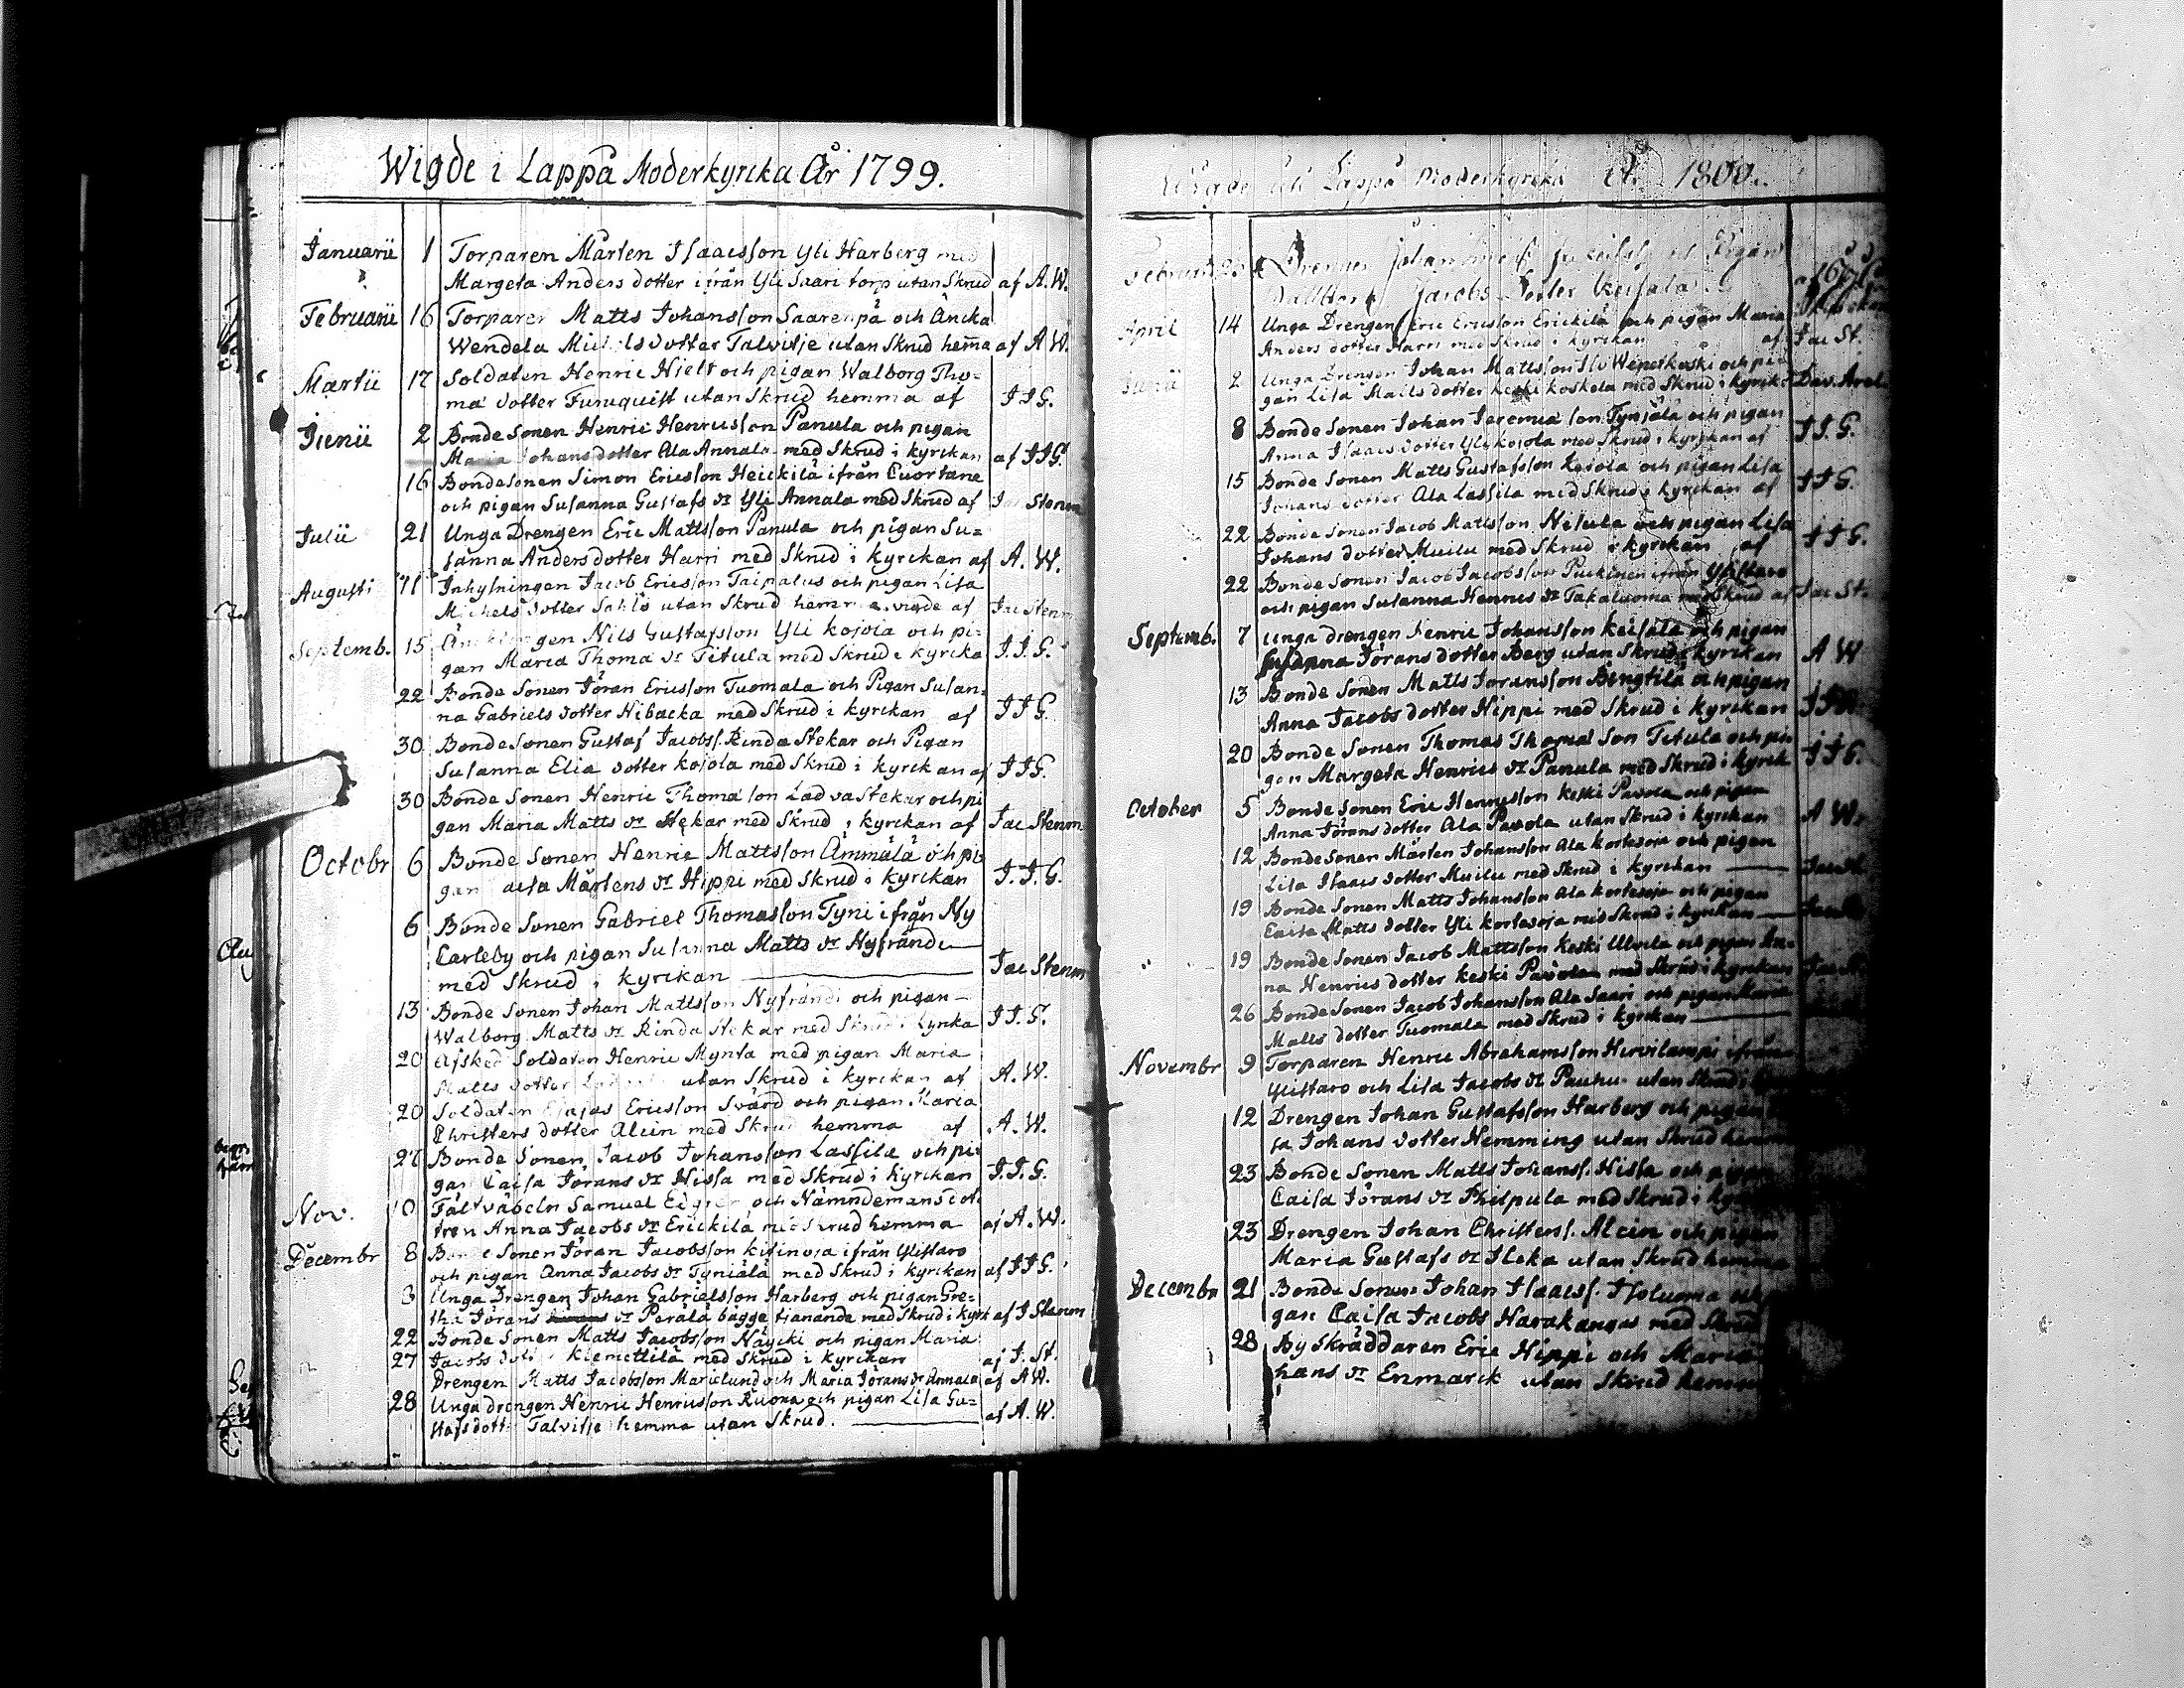 Wigde i Lappå Moderkyrcka År 1799.
Januarii 1 Torparen Mårten Isaacsson Yli Harberg med
Margeta Anders dotter ifrån Yli Saari torp utan Skrud af A.W.
Februarii 16 Torparen Matts Johansson Saarenpä och Änka
Wendela Michels dotter Talvitje utan Skrud hemma af A W.
Martii 17 Soldaten Henric Hielt och pigan Walborg Tho-
ma dotter Furuquist utan Skrud hemma af J J G.
Junii 2 Bonde Sonen Henric Henricsson Panula och pigan
Maria Johans dotter Ala Annala med Skrud i kyrckan af J J G.
16 Bonde Sonen Simon Ericsson Heickilä ifrån Cuortane
och pigan Susanna Gustafs dr Yli Annala med Skrud af Jac Stenm
Julii 21 Unga Drengen Eric Mattsson Panula och pigan Su-
sanna Anders dotter Harri med Skrud i kyrckan af A. W.
Augusti 11 Inhysningen Jacob Ericsson Taipalus och pigan Lisa
Michels dotter utan Skrud hemma vigde af Jac Stenm
Septemb. 15 Nils Gustafsson Yli kojola och pi-
gan Maria Thoma dr Titula med Skrud i kyrcka J. J. G.
22 Bonde Sonen Jöran Ericsson Tuomala och Pigan Susan-
na Gabriels dotter Hibacka med Skrud i kyrckan af J J G.
30 Bonde Sonen Gustaf Jacobs. Rinda Stekar och Pigan
Susanna Elia dotter kojola med Skrud i kyrckan af J J G.
30 Bonde Sonen Henric Thoma son Ladva Stekar och pi
gan Maria Matts dr Stekar med Skrud i kyrckan af Jac Stenm
Octobr 6 Bonde Sonen Henric Mattsson Ämmälä och pi
gan Caisa Mårtens dr Hippi med Skrud i kyrckan J. J. G.
6 Bonde Sonen Gabriel Thomasson Tyni ifrån Ny
Carleby och pigan Susanna Matts dr Nyfrände
med Skrud i kyrckan Jac Stenm
13 Bonde Sonen Johan Mattsson Nyfrändi och pigan
Walborg Matts dr Rinda Stekar med Skrud i kyrcka J J. G.
20 Afsked Soldaten Henric Mynta med pigan Maria
Matts dotter utan Skrud i kyrckan af A. W.
20 Soldaten Ericsson Svärd och pigan Maria
Christers dotter Alcin med Skrud hemma af A. W.
27 Bonde Sonen Jacob Johansson Lassila och pi-
gan Caisa Jörans dr Hissa med Skrud i kyrckan J. J. G.
Nov. 10 Fältväbeln Samuel och Nämndemans dot
tren Anna Jacobs dr Erickilä med Skrud hemma af A. W.
Decembr 8 Bonde Sonen Jöran Jacobsson kitinoja ifrån Ylistaro
och pigan Anna Jacobs dr Tynjälä med Skrud i kyrckan af J J G.
3 Unga Drengen Johan Gabrielsson Harberg och pigan Gre-
tha Jörans dr Perälä bägge tjanande med Skrud i kyrk af J Stenm
22 Bonde Sonen Matts Jacobsson Näycki och pigan Maria
27 Jacobs dotter Kiemettilä med Skrud i kyrckan af J. St.
Drengen Matts Jacobsson Marielund och Maria Jörans dr Annala af A W.
28 Unga drengen Henric Henricsson Ruona och pigan Lisa Gu-
stafs dotter Talvitje hemma utan Skrud. af A. W.
Wigde uti Lappå Moderkyrcka År 1800.
Februarii Drengen Johan och Pigan
Walborg Jacobs dotter Keisala
April 14 Unga Drengen Eric Ericsson Erickilä och pigan Maria
Anders dotter Harri med Skrud i kyrckan af Jac St.
Junii 2 Unga Drengen Johan Mattsson och pi-
gan Lisa Matts dotter keski koskela med Skrud i kyrck Dav. Arel
8 Bonde Sonen Johan Jeremia son Tynjälä och pigan
Anna Isaacs dotter Yli kojola med Skrud i kyrckan af J J. G.
15 Bonde Sonen Matts Gustafsson kojola och pigan Lisa
Johans dotter Ala Lassila med Skrud i kyrckan af J J G.
22 Bonde Sonen Jacob Mattsson Nitula och pigan Lisa
Johans dotter Muilu med Skrud i kyrckan af J J G.
22 Bonde Sonen Jacob Jacobsson Puckinen ifrån Ylistaro
och pigan Susanna Henrics dr Takaluoma med Skrud af Jac St.
Septemb. 7 Unga drengen Henric Johansson keisala och pigan
Susanna Jörans dotter Berg utan Skrud i kyrckan A W
13 Bonde Sonen Matts Joransson Bengtilä och pigan
Anna Jacobs dotter Hippi med Skrud i kyrckan J J G.
20 Bonde Sonen Thomas Thoma Son Titula och pi
gan Margeta Henrics dr Panula med Skrud i kyrck J J G.
October 5 Bonde Sonen Eric Henricsson keski Pavola och pigan
Anna Jörans dotter Ala Pavola utan Skrud i kyrckan A W.
12 Bonde Sonen Mårten Johansson Ala kortesoja och pigan
Lisa Isaacs dotter Muilu med Skrud i kyrckan Jac St.
19 Bonde Sonen Matts Johansson Ala kortesoja och pigan
Caisa Matts dotter Yli kortesoja med Skrud i kyrckan
19 Bonde Sonen Jacob Mattsson keski och pigan An-
na Henrics dotter keski Pavola med Skrud i kyrckan
26 Bonde Sonen Jacob Johansson Ala Saari och pigan Maria
Matts dotter Tuomala med Skrud i kyrckan
Novembr 9 Torparen Henric Abrahamsson Hirvilampi ifrån
Ylistaro och Lisa Jacobs dr Pauhu utan Skrud
12 Drengen Johan Gustafsson Harberg och pigan
sa Johans dotter Hemming utan Skrud hemma
23 Bonde Sonen Matts Johanss. Hissa och pigan
Caisa Jörans dr Philpula med Skrud i kyrc
23 Drengen Johan Christers. Alcin och pigan
Maria Gustafs dr Ileka utan Skrud hemma
Decembr 21 Bonde Sonen Johan Isaacss. Isoluoma och
gan Caisa Jacobs Harakangas med Skrud
28 By Skräddaren Eric Hippi och Maria
hans dr Enmarck utan Skrud hemma